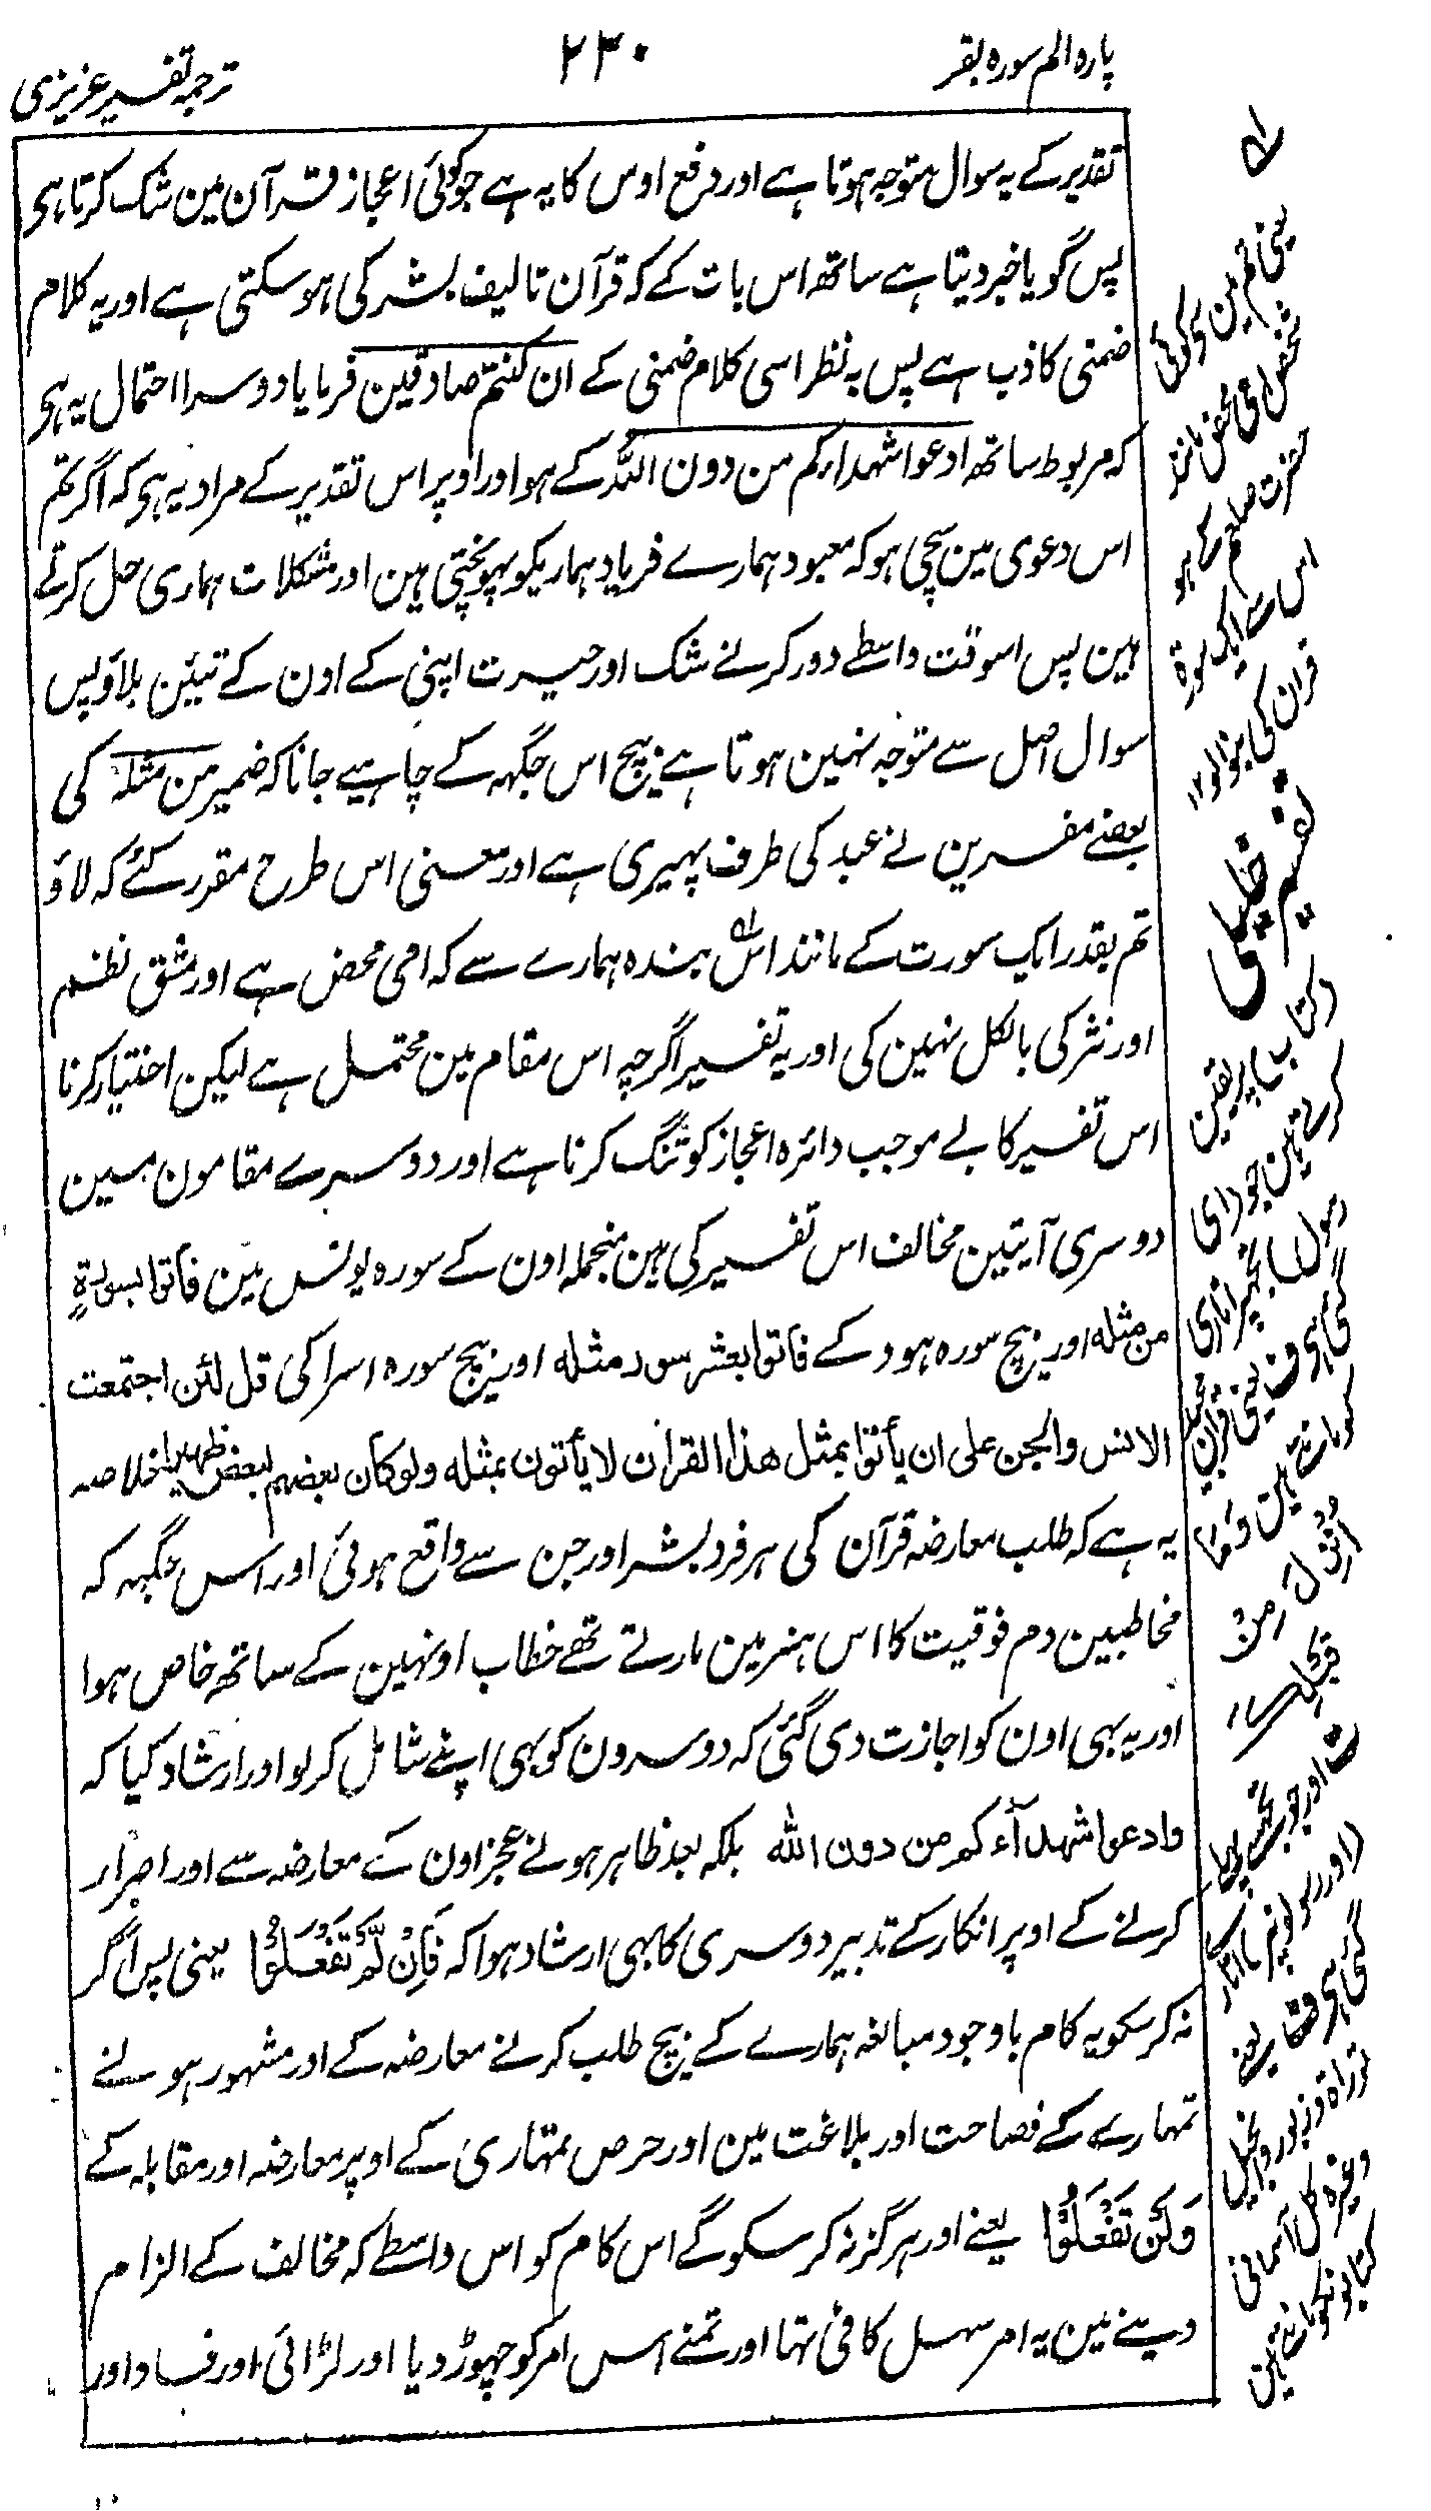 پارہ الم سورہ بقر
۲۳۰
ترجمہ تفسیر عزیزی
تقدیر کے یہ سوال متوجہ ہوتا ہے اور دفع اوس کا یہ ہے جو کوئی اعجاز قرآن مین شک کرتا ہی
پس گویا خبر دیتا ہے ساتھ اس بات کے کہ قرآن تالیف بشر کی ہو سکتی ہے اور یہ کلام
ضمنی کاذب ہے پس بہ نظر اسی کلام ضمنی کے ان کنتم صادقین فرمایا دوسرا احتمال یہ ہی
کہ مربوط ساتھ ادعوا شہداءکم من دون اللہ کے ہو اور اوپر اس تقدیر کے مراد یہ ہی کہ اگر تم
اس دعوی مین سچی ہو کہ معبود ہمارے فریاد ہماریکو پہونچتی ہین اور مشکلات ہماری حل کرتے
ہین پس اسوقت واسطے دور کرنے شک اور حیرت اپنی کے اون کے تیئن بلاؤ پس
سوال اصل سے متوجہ نہین ہوتا ہے بیچ اس جگہہ کے چاہیے جانا کہ ضمیر من مثلہ کی
بعضے مفسرین نے عبد کی طرف پہیری ہے اور معنی اس طرح مقرر کئے کہ لاؤ
تم بقدر ایک سورت کے مانند اس بندہ ہمارے سے کہ امی محض ہے اور مشق نظم
اور نثر کی بالکل نہین کی اور یہ تفسیر اگرچہ اس مقام مین محتمل ہے لیکن اختیار کرنا
اس تفسیر کا بے موجب دائرہ اعجاز کو تنگ کرنا ہے اور دوسرے مقامون مین
دوسری آیتین مخالف اس تفسیر کی ہین منجملہ اون کے سورہ یونس مین فأتوا بسورةٍ
من مثله اور بیچ سورہ ہود کے فأتوا بعشر سور مثله اور بیچ سورہ اسرا کی قل لئن اجتمعت
الانس والجن علی ان یأتوا بمثل هذا القرآن لا یأتون بمثله ولو کان بعضهم لبعض ظهیرا خلاصہ
یہ ہے کہ طلب معارضہ قرآن کی ہر فرد بشر اور جن سے واقع ہوئی اور اس جگہہ کہ
مخاطبین دم فوقیت کا اس ہنر مین مارتے تھے خطاب اونہین کے ساتھ خاص ہوا
اور یہ بہی اون کو اجازت دی گئی کہ دوسرون کو بہی اپنے شامل کر لو اور ارشاد کیا کہ
وادعوا شهدآءکم من دون الله بلکہ بعد ظاہر ہونے عجز اون کے معارضہ سے اور اصرار
کرنے کے اوپر انکار کے تدبیر دوسری کا بہی ارشاد ہوا کہ فَاِنْ لَّمْ تَفْعَلُوْا یعنی پس اگر
نہ کر سکو یہ کام باوجود مبالغہ ہمارے کے بیچ طلب کرنے معارضہ کے اور مشہور ہونے
تمہارے کے فصاحت اور بلاغت مین اور حرص تمہاری کے اوپر معارضہ اور مقابلہ کے
وَلَنْ تَفْعَلُوْا یعنے اور ہرگز نہ کر سکو گے اس کام کو اس واسطے کہ مخالف کے الزام
دینے مین یہ امر سہل کافی تہا اور تمنے اس امر کو چہوڑ دیا اور لڑائی اور فساد اور
یعنی تم مین کوئی
شخص امی محض مانند
حضرت صلعم کے ہو
اس سے ایک سورۃ
قرآن کی بنوا لو ۱۲